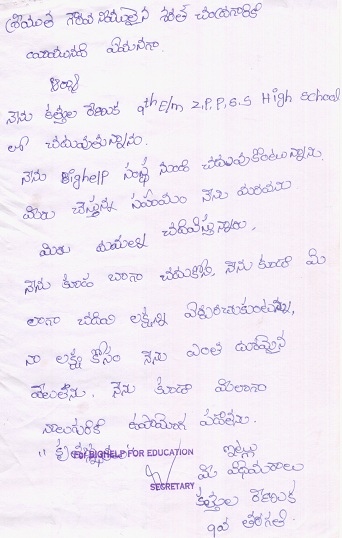 శ్రీయుత గౌరవనీయులైన శరత్ చంద్రగారికి
వ్రాయునది ఏమనగా.
నేను కత్తుల రేణుక 9th E/m Z.P.P.S.S High School
లో చదువుతున్నాను.
నేను Bighelp సంస్థ నుండి చదువుకుంటున్నాను.
మీరు చేస్తున్న సహాయం నేను మరువను
మీరు మమల్ని చదివిస్తున్నారు.
నేను కూడా బాగా చదువుకొని, నేను కూడా మీ
లాగా చదివి లక్ష్యాన్ని ఏర్పరుచుకుంటాన్ని,
నా లక్ష్యం కోసం నేను ఎంత దూరమైన
వెలుతాను. నేను కూడా మీలాగా
నాలుగురికి ఉపాయోగ పడతాను.
" కృతజ్ఞతలు "
For BIGHELP FOR EDUCATION
SECRETARY
ఇట్లు
మీ విధేయురాలు
కత్తుల రేణుక
9వ తరగతి.